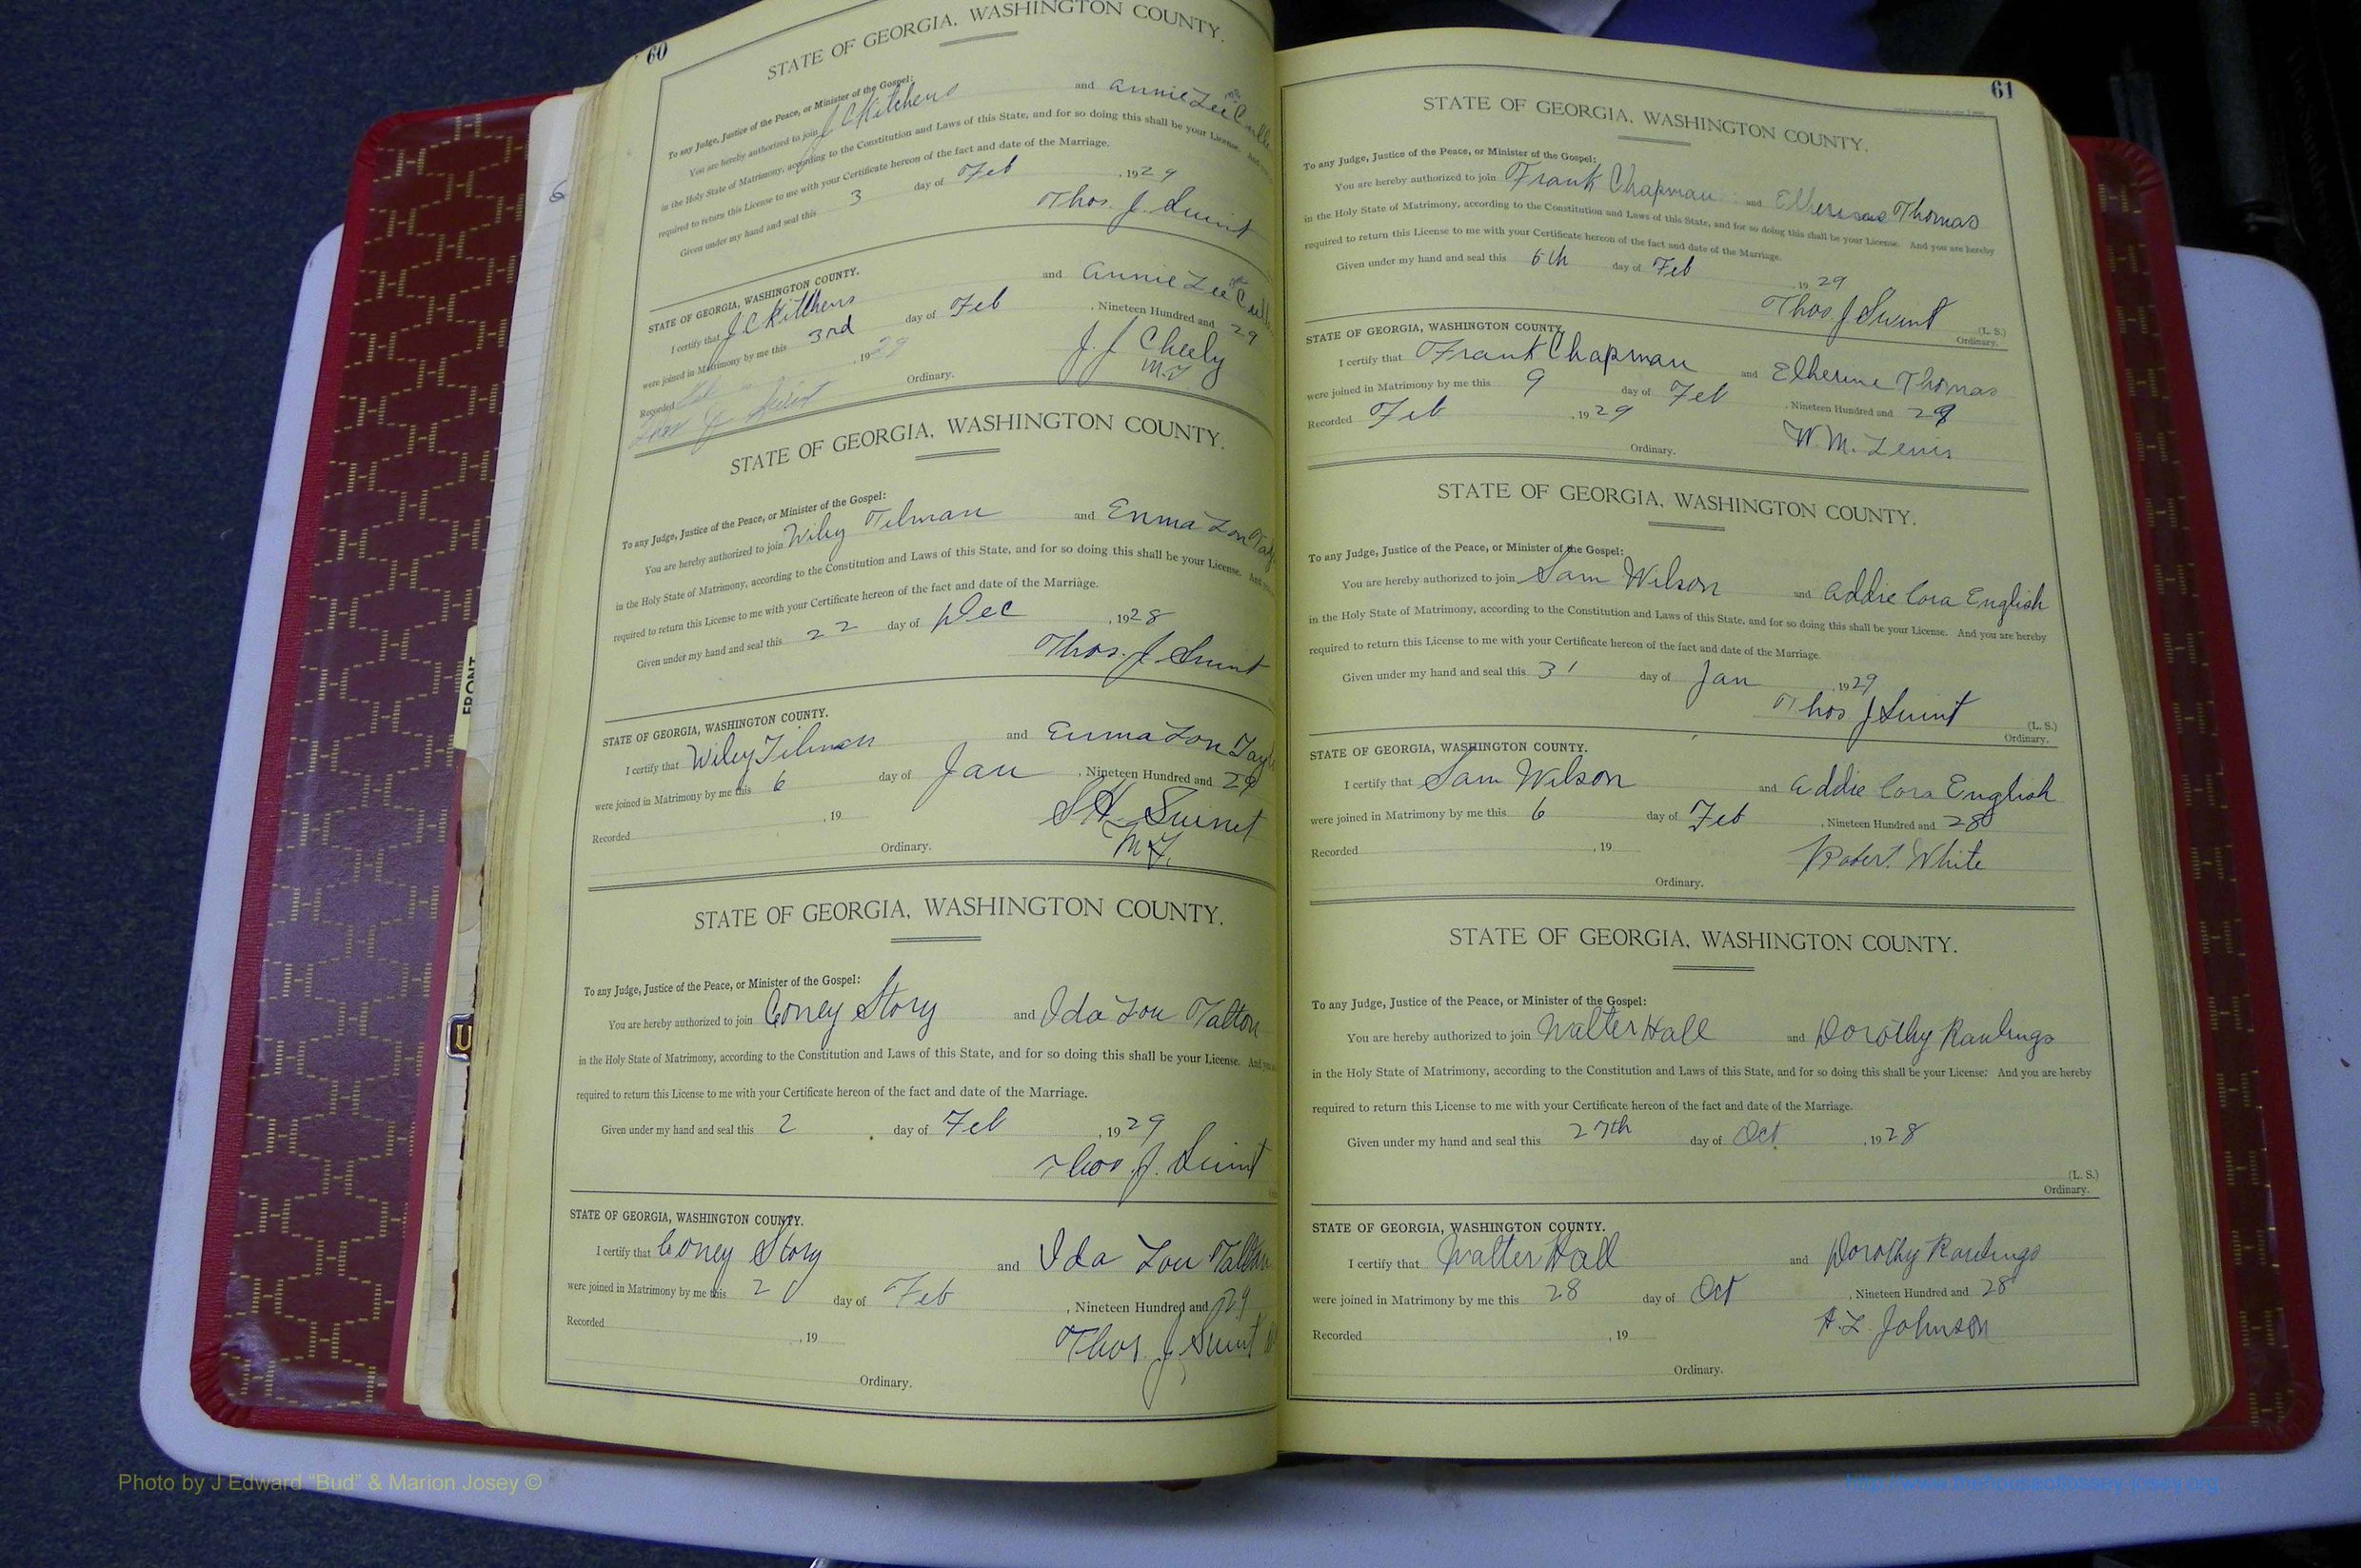 60
STATE OF GEORGIA, WASHINGTON COUNTY.
To any Judge, Justice of the Peace, or Minister of the Gospel:
You are hereby authorized to join J C Kitchens and Annie Lee
in the Holy State of Matrimony, according to the Constitution and Laws of this State, and for so doing this shall be your License. And
required to return this License to me with your Certificate hereon of the fact and date of the Marriage.
Given under my hand and seal this 3 day of Feb, 1929
Thos. J. Swint
STATE OF GEORGIA, WASHINGTON COUNTY.
I certify that J C Kitchens and Annie Lee
were joined in Matrimony by me this 3rd day of Feb, Nineteen Hundred and 29
Recorded, 1929
J. J. Cheely
M.G
Ordinary.
STATE OF GEORGIA, WASHINGTON COUNTY.
To any Judge, Justice of the Peace, or Minister of the Gospel:
You are hereby authorized to join Wiley Tilman and Emma Lou
in the Holy State of Matrimony, according to the Constitution and Laws of this State, and for so doing this shall be your License. And you
required to return this License to me with your Certificate hereon of the fact and date of the Marriage.
Given under my hand and seal this 22 day of Dec, 1928
Thos. J. Swint
STATE OF GEORGIA, WASHINGTON COUNTY.
I certify that Wiley Tilman and Emma Lou
were joined in Matrimony by me this 6 day of Jan, Nineteen Hundred and 29
Recorded, 19
Ordinary.
STATE OF GEORGIA, WASHINGTON COUNTY.
To any Judge, Justice of the Peace, or Minister of the Gospel:
You are hereby authorized to join Coney Story and Ida Lou Talton
in the Holy State of Matrimony, according to the Constitution and Laws of this State, and for so doing this shall be your License. And you
required to return this License to me with your Certificate hereon of the fact and date of the Marriage.
Given under my hand and seal this 2 day of Feb, 1929
Thos J. Swint
STATE OF GEORGIA, WASHINGTON COUNTY.
I certify that Coney Story and Ida Lou Talton
were joined in Matrimony by me this 2 day of Feb, Nineteen Hundred and 29
Recorded, 19
Thos. J. Swint
Ordinary.
61
STATE OF GEORGIA, WASHINGTON COUNTY.
To any Judge, Justice of the Peace, or Minister of the Gospel:
You are hereby authorized to join Frank Chapman and Thomas
in the Holy State of Matrimony, according to the Constitution and Laws of this State, and for so doing this shall be your License. And you are hereby
required to return this License to me with your Certificate hereon of the fact and date of the Marriage.
Given under my hand and seal this 6th day of Feb, 1929
Thos J Swint (L. S.)
Ordinary.
STATE OF GEORGIA, WASHINGTON COUNTY.
I certify that Frank Chapman and Elherine Thomas
were joined in Matrimony by me this 9 day of Feb, Nineteen Hundred and 29
Recorded Feb, 1929
W. M. Lewis
Ordinary.
STATE OF GEORGIA, WASHINGTON COUNTY.
To any Judge, Justice of the Peace, or Minister of the Gospel:
You are hereby authorized to join Sam Wilson and Addie Cora English
in the Holy State of Matrimony, according to the Constitution and Laws of this State, and for so doing this shall be your License. And you are hereby
required to return this License to me with your Certificate hereon of the fact and date of the Marriage
Given under my hand and seal this 31 day of Jan, 1929
Thos J Swint (L. S.)
Ordinary.
STATE OF GEORGIA, WASHINGTON COUNTY.
I certify that Sam Wilson and Addie Cora English
were joined in Matrimony by me this 6 day of Feb, Nineteen Hundred and 28
Recorded, 19
Robert White
Ordinary.
STATE OF GEORGIA, WASHINGTON COUNTY.
To any Judge, Justice of the Peace, or Minister of the Gospel:
You are hereby authorized to join Walter Hall and Dorothy Rawlings
in the Holy State of Matrimony, according to the Constitution and Laws of this State, and for so doing this shall be your License. And you are hereby
required to return this License to me with your Certificate hereon of the fact and date of the Marriage.
Given under my hand and seal this 27th day of Oct, 1928
(L. S.)
Ordinary.
STATE OF GEORGIA, WASHINGTON COUNTY.
I certify that Walter Hall and Dorothy Rawlings
were joined in Matrimony by me this 28 day of Oct, Nineteen Hundred and 28
Recorded, 19
A. L. Johnson
Ordinary.
FRONT
Photo by J Edward "Bud" & Marion Josey ©